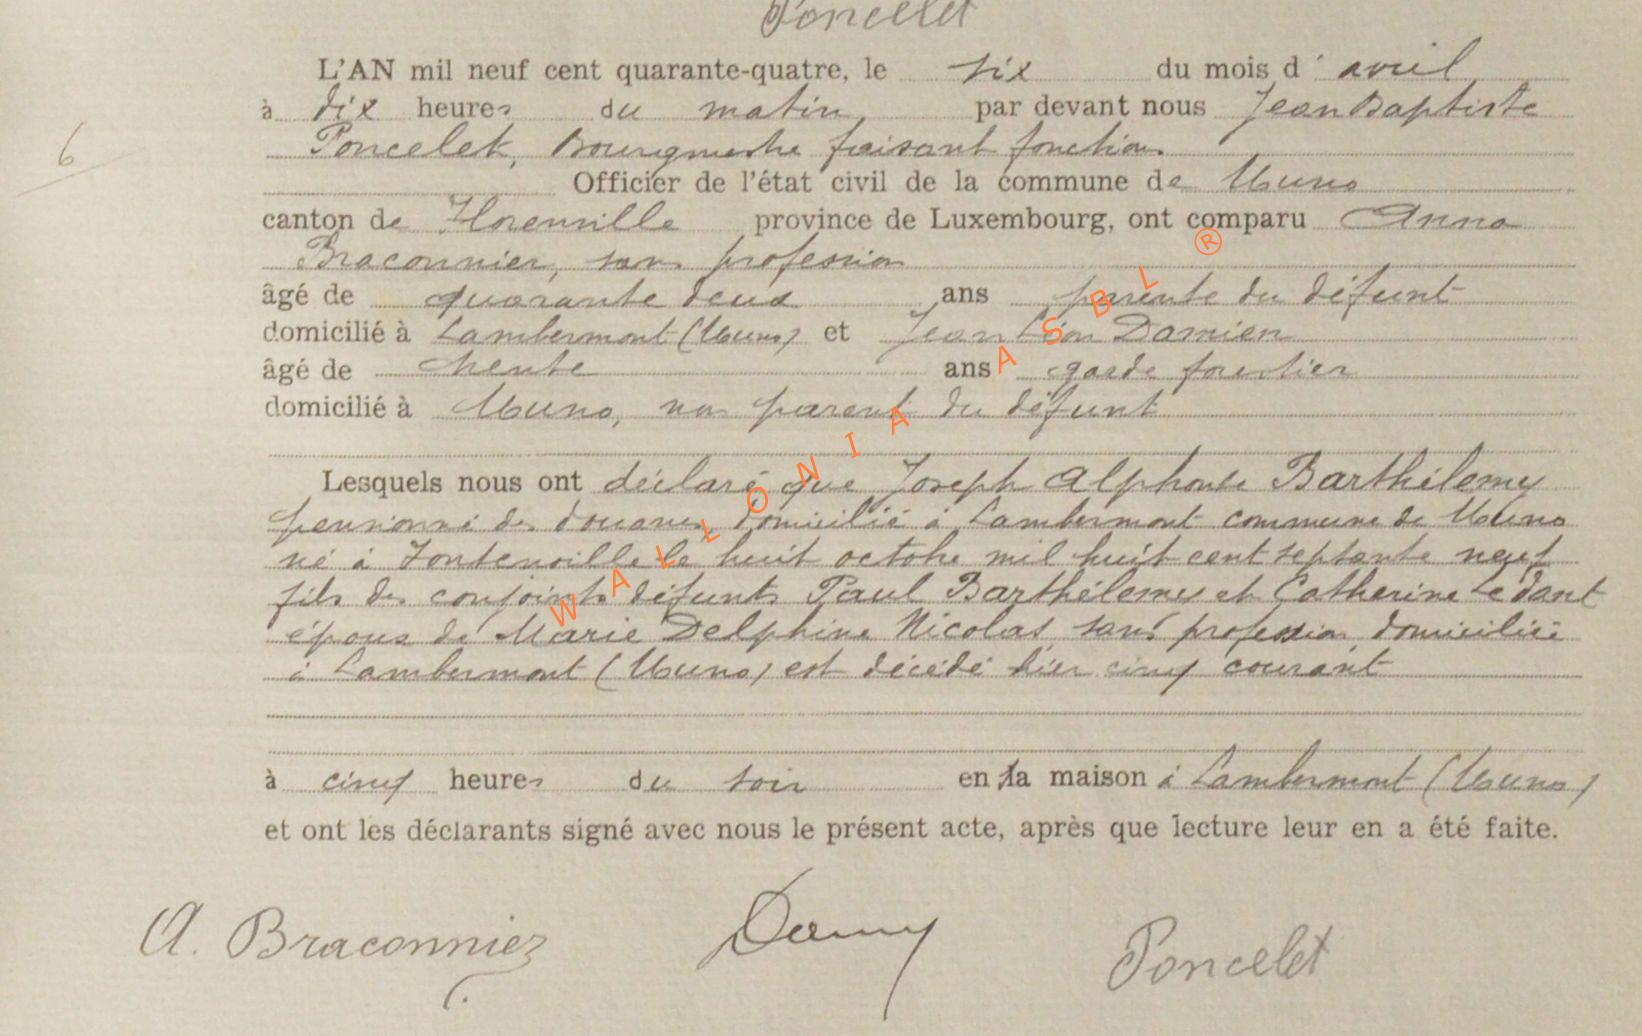 Poncelet
L'AN mil neuf cent quarante-quatre, le six du mois d' avril
à dix heures du matin par devant nous Jean Baptiste
6
Poncelet, Bourgmestre faisant fonction
Officier de l'état civil de la commune de Muno
canton de Florenville province de Luxembourg, ont comparu Anna
Braconnier, sans profession
âgé de quarante deux ans parente du défunt
domicilié à Lambermont (Muno) et Jean Léon Damien
âgé de trente ans garde forestier
domicilié à Muno, non parent du défunt
Lesquels nous ont déclaré que Joseph Alphonse Barthélemy
pensionné des douanes domicilié à Lambermont commune de Muno
né à Fontenoille le huit octobre mil huit cent septante neuf
fils des conjoints défunts Paul Barthélemy et Catherine Ledant
époux de Marie Delphine Nicolas sans profession domiciliée
à Lambermont (Muno) est décédé hier cinq courant
à cinq heures du soir en la maison à Lambermont (Muno)
et ont les déclarants signé avec nous le présent acte, après que lecture leur en a été faite.
A. Braconnier Poncelet
WALLONIA ASBL ®